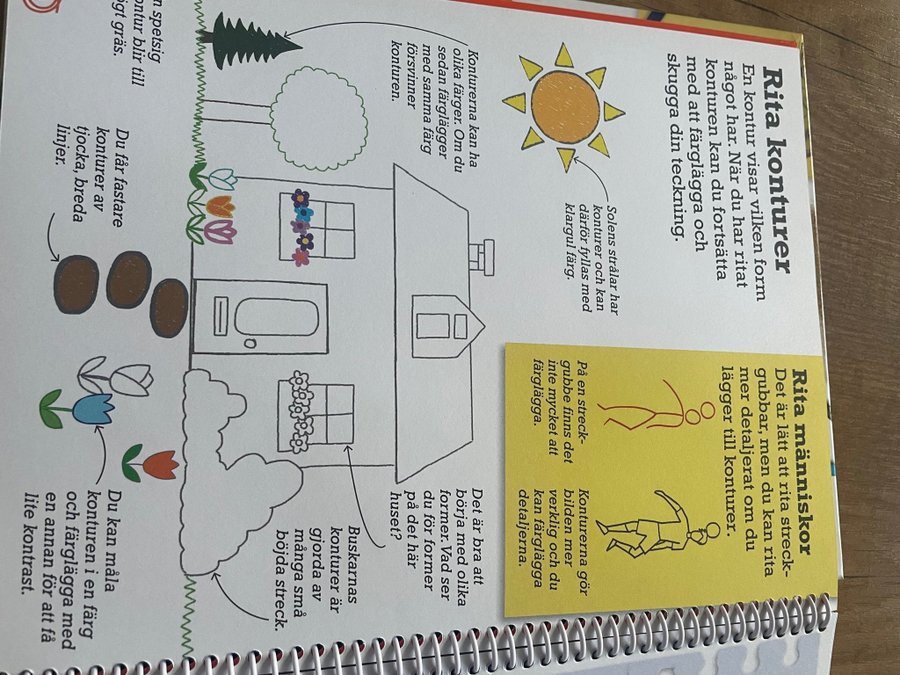 Rita konturer
En kontur visar vilken form
något har. När du har ritat
konturen kan du fortsätta
med att färglägga och
skugga din teckning.
Rita människor
Det är lätt att rita streck-
gubbar, men du kan rita
mer detaljerat om du
lägger till konturer.
På en streck-
gubbe finns det
inte mycket att
färglägga.
Konturerna gör
bilden mer
verklig och du
kan färglägga
detaljerna.
Solens strålar har
konturer och kan
därför fyllas med
klargul färg.
Konturerna kan ha
olika färger. Om du
sedan färglägger
med samma färg
försvinner
konturen.
Det är bra att
börja med olika
former. Vad ser
du för former
på det här
huset?
Buskarnas
konturer är
gjorda av
många små
böjda streck.
spetsig
ontur blir till
gräs.
Du får fastare
konturer av
tjocka, breda
linjer.
Du kan måla
konturen i en färg
och färglägga med
en annan för att få
lite kontrast.